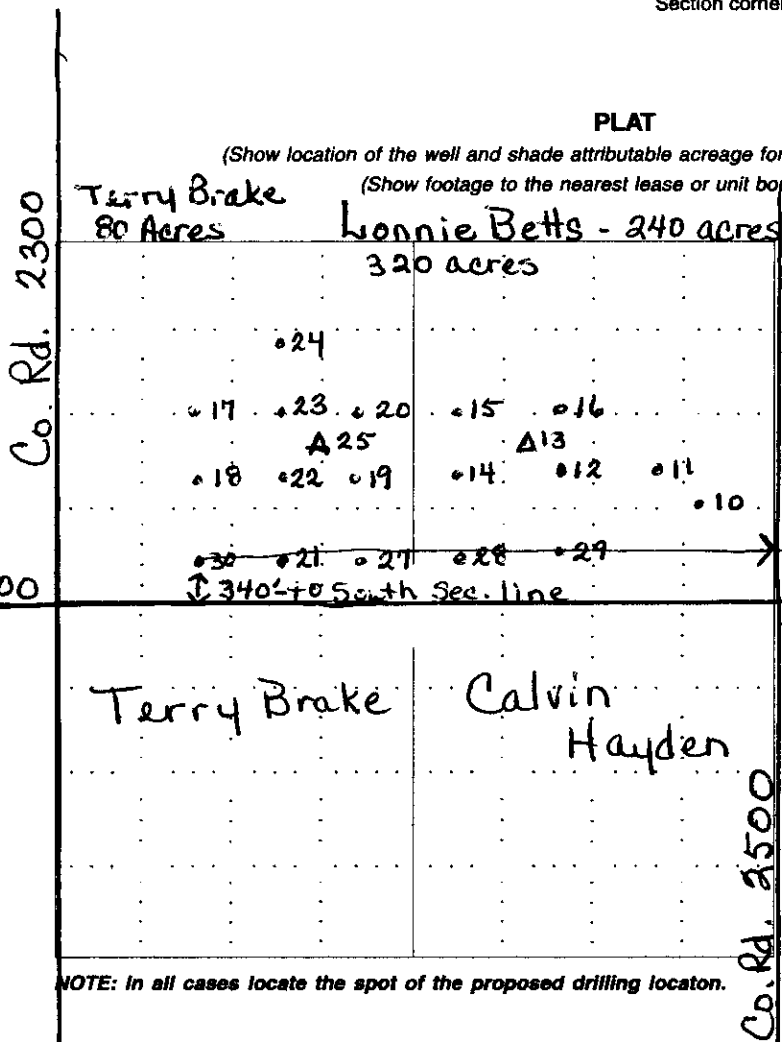 Section corner
PLAT
(Show location of the well and shade attributable acreage for
(Show footage to the nearest lease or unit bo
Terry Brake
80 Acres
Lonnie Betts - 240 acres
320 acres
Co. Rd. 2300
24
17 23 20 15 16
25 13
18 22 19 14 12 11
10
30 21 27 28 29
340' to South Sec. line
00
Terry Brake
Calvin
Hayden
Co. Rd. 2500
NOTE: In all cases locate the spot of the proposed drilling locaton.